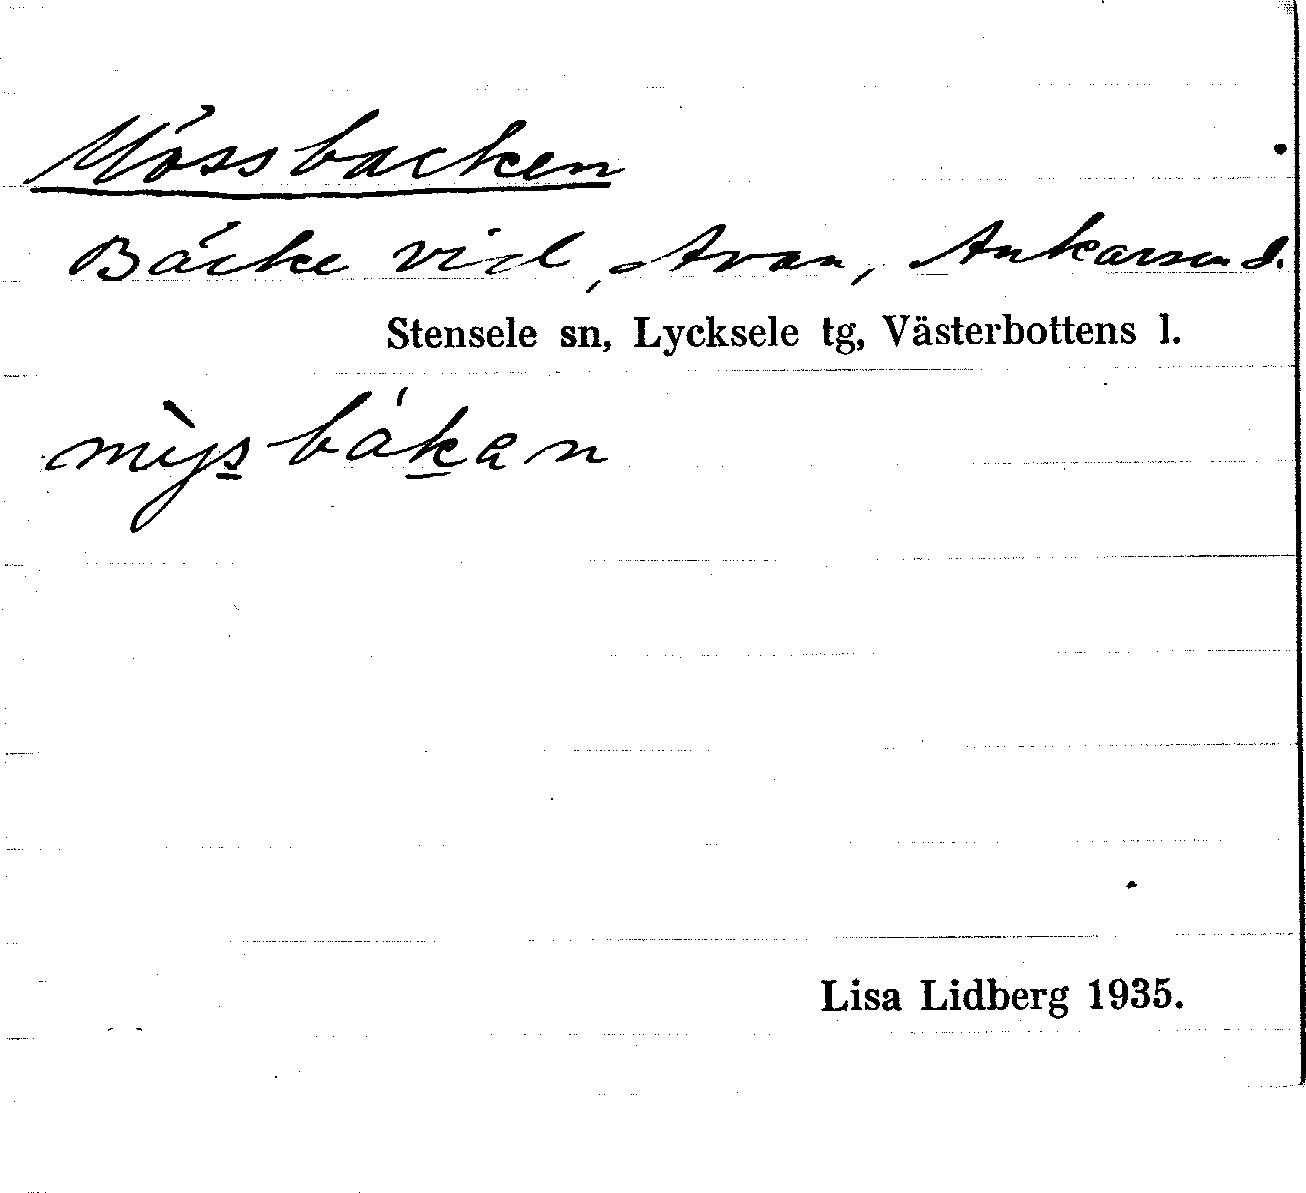 Mössbacken
Backe vid Avan, Ankarsund.
Stensele sn, Lycksele tg, Västerbottens l.
mỳsbákan
Lisa Lidberg 1935.